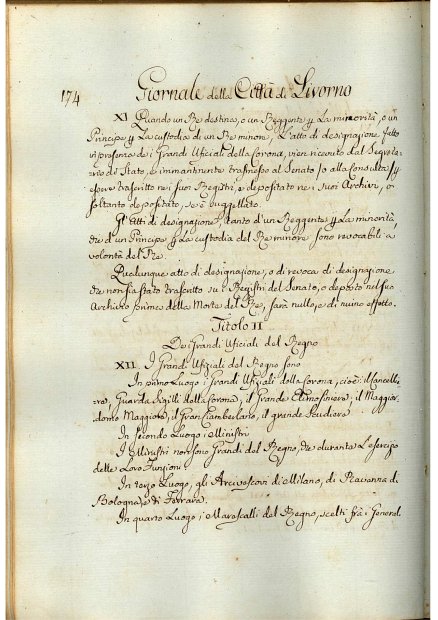 174 Giornale della Città di Livorno
XI Quando un Re destina, o un Reggente p La minorità, o un
Principe p La custodia di un Re minore, L'atto di designazione fatto
in presenza dei Grandi Ufiziali della Corona, vien ricevuto dal Segreta-
rio di Stato, e immantinente trasmesso al Senato
essere trascritto nei suoi Registri, e depositato nei suoi Archivi, o
soltanto depositato, se è suggellato.
Gl'Atti di designazione, tanto d'un Reggente p La minorità,
che d'un Principe p La custodia del Re minore sono revocabili a
volontà del Re.
Qualunque atto di designazione, o di revoca di designazione
che non sia stato trascritto su i Registri del Senato, o deposto nel suo
Archivio prima della Morte del Re, sarà nullo, e di niuno effetto.
Titolo II
Dei Grandi Ufiziali del Regno
XII. I Grandi Ufiziali del Regno sono
In primo Luogo i Grandi Ufiziali della Corona, cioè: il Cancell-
iere, Guarda Sigilli della Corona, il Grande Elimosiniere, il Maggior-
domo Maggiore, il Gran Ciamberlano, il grande Scudiero
In secondo Luogo i Ministri
I Ministri non sono Grandi del Regno, che durante L'esercizio
delle Loro Funzioni
In terzo Luogo, gli Arcivescovi di Milano, di Ravenna di
Bologna, e di Ferrara.
In quarto Luogo, i Marescalli del Regno, scelti frà i General